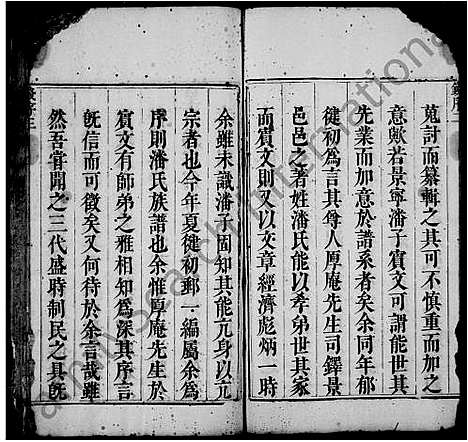 蒐討而纂輯之其可不慎重而加之
意歟若景寧潘子賓文可謂能世其
先業而加意於譜系者矣余同年郁
健初為言其尊人厚庵先生司鐸景
邑邑之著姓潘氏能以孝弟世其家
而賓文則又以文章經濟彪炳一時
余雖未識潘子固知其能亢身以亢
宗者也今年夏健初郵一編屬余為
序則潘氏族譜也余惟厚庵先生於
賓文有師弟之雅相知為深其序言
旣信而可徵矣又何待於余言哉雖
然吾甞聞之三代盛時制民之具旣